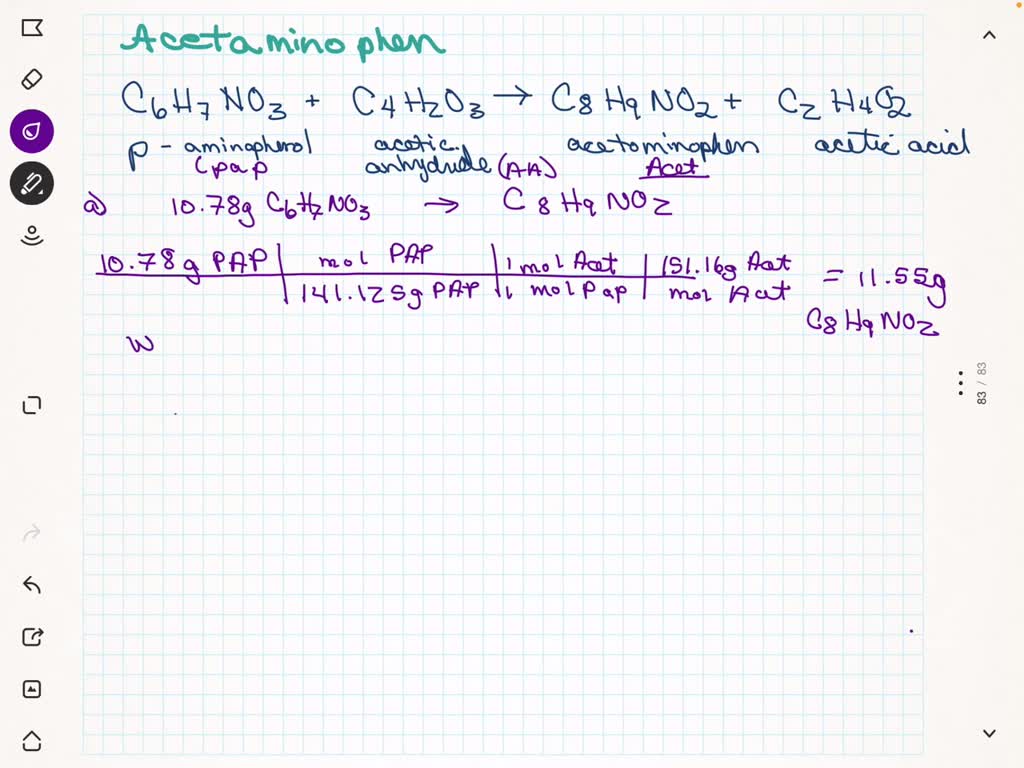 Acetaminophen
C6H7NO3 + C4H2O3 → C8H9NO2 + C2H4O2
p-aminopherol acetic anhydrude (AA) acetominophen acetic acid
(pap Acet
a) 10.78g C6H7NO3 → C8H9NO2
10.78g PAP | mol PAP | 1 mol Acet | 151.16g Acet = 11.55g
141.125g PAP | 1 mol Pap | mol Acet
C8H9NO2
W
83 / 83